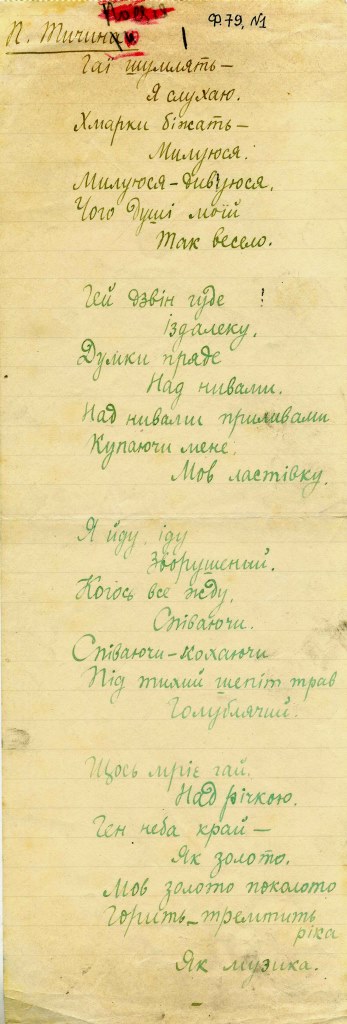 Ф 79, №1
П. Тичина
1
Гаї шумлять –
Я слухаю.
Хмарки біжать –
Милуюся.
Милуюся – дивуюся,
Чого душі моїй
Так весело.
Гей дзвін гуде !
Іздалеку.
Думки пряде
Над нивами.
Над нивами приливами
Купаючи мене.
Мов ластівку.
Я йду, іду
Зворушений.
Когось все жду,
Співаючи.
Співаючи-кохаючи
Під тихий шепіт трав
Голублячий.
Щось мріє гай.
Над річкою.
Ген неба край –
Як золото.
Мов золото поколото
Горить-тремтить
ріка
Як музика.